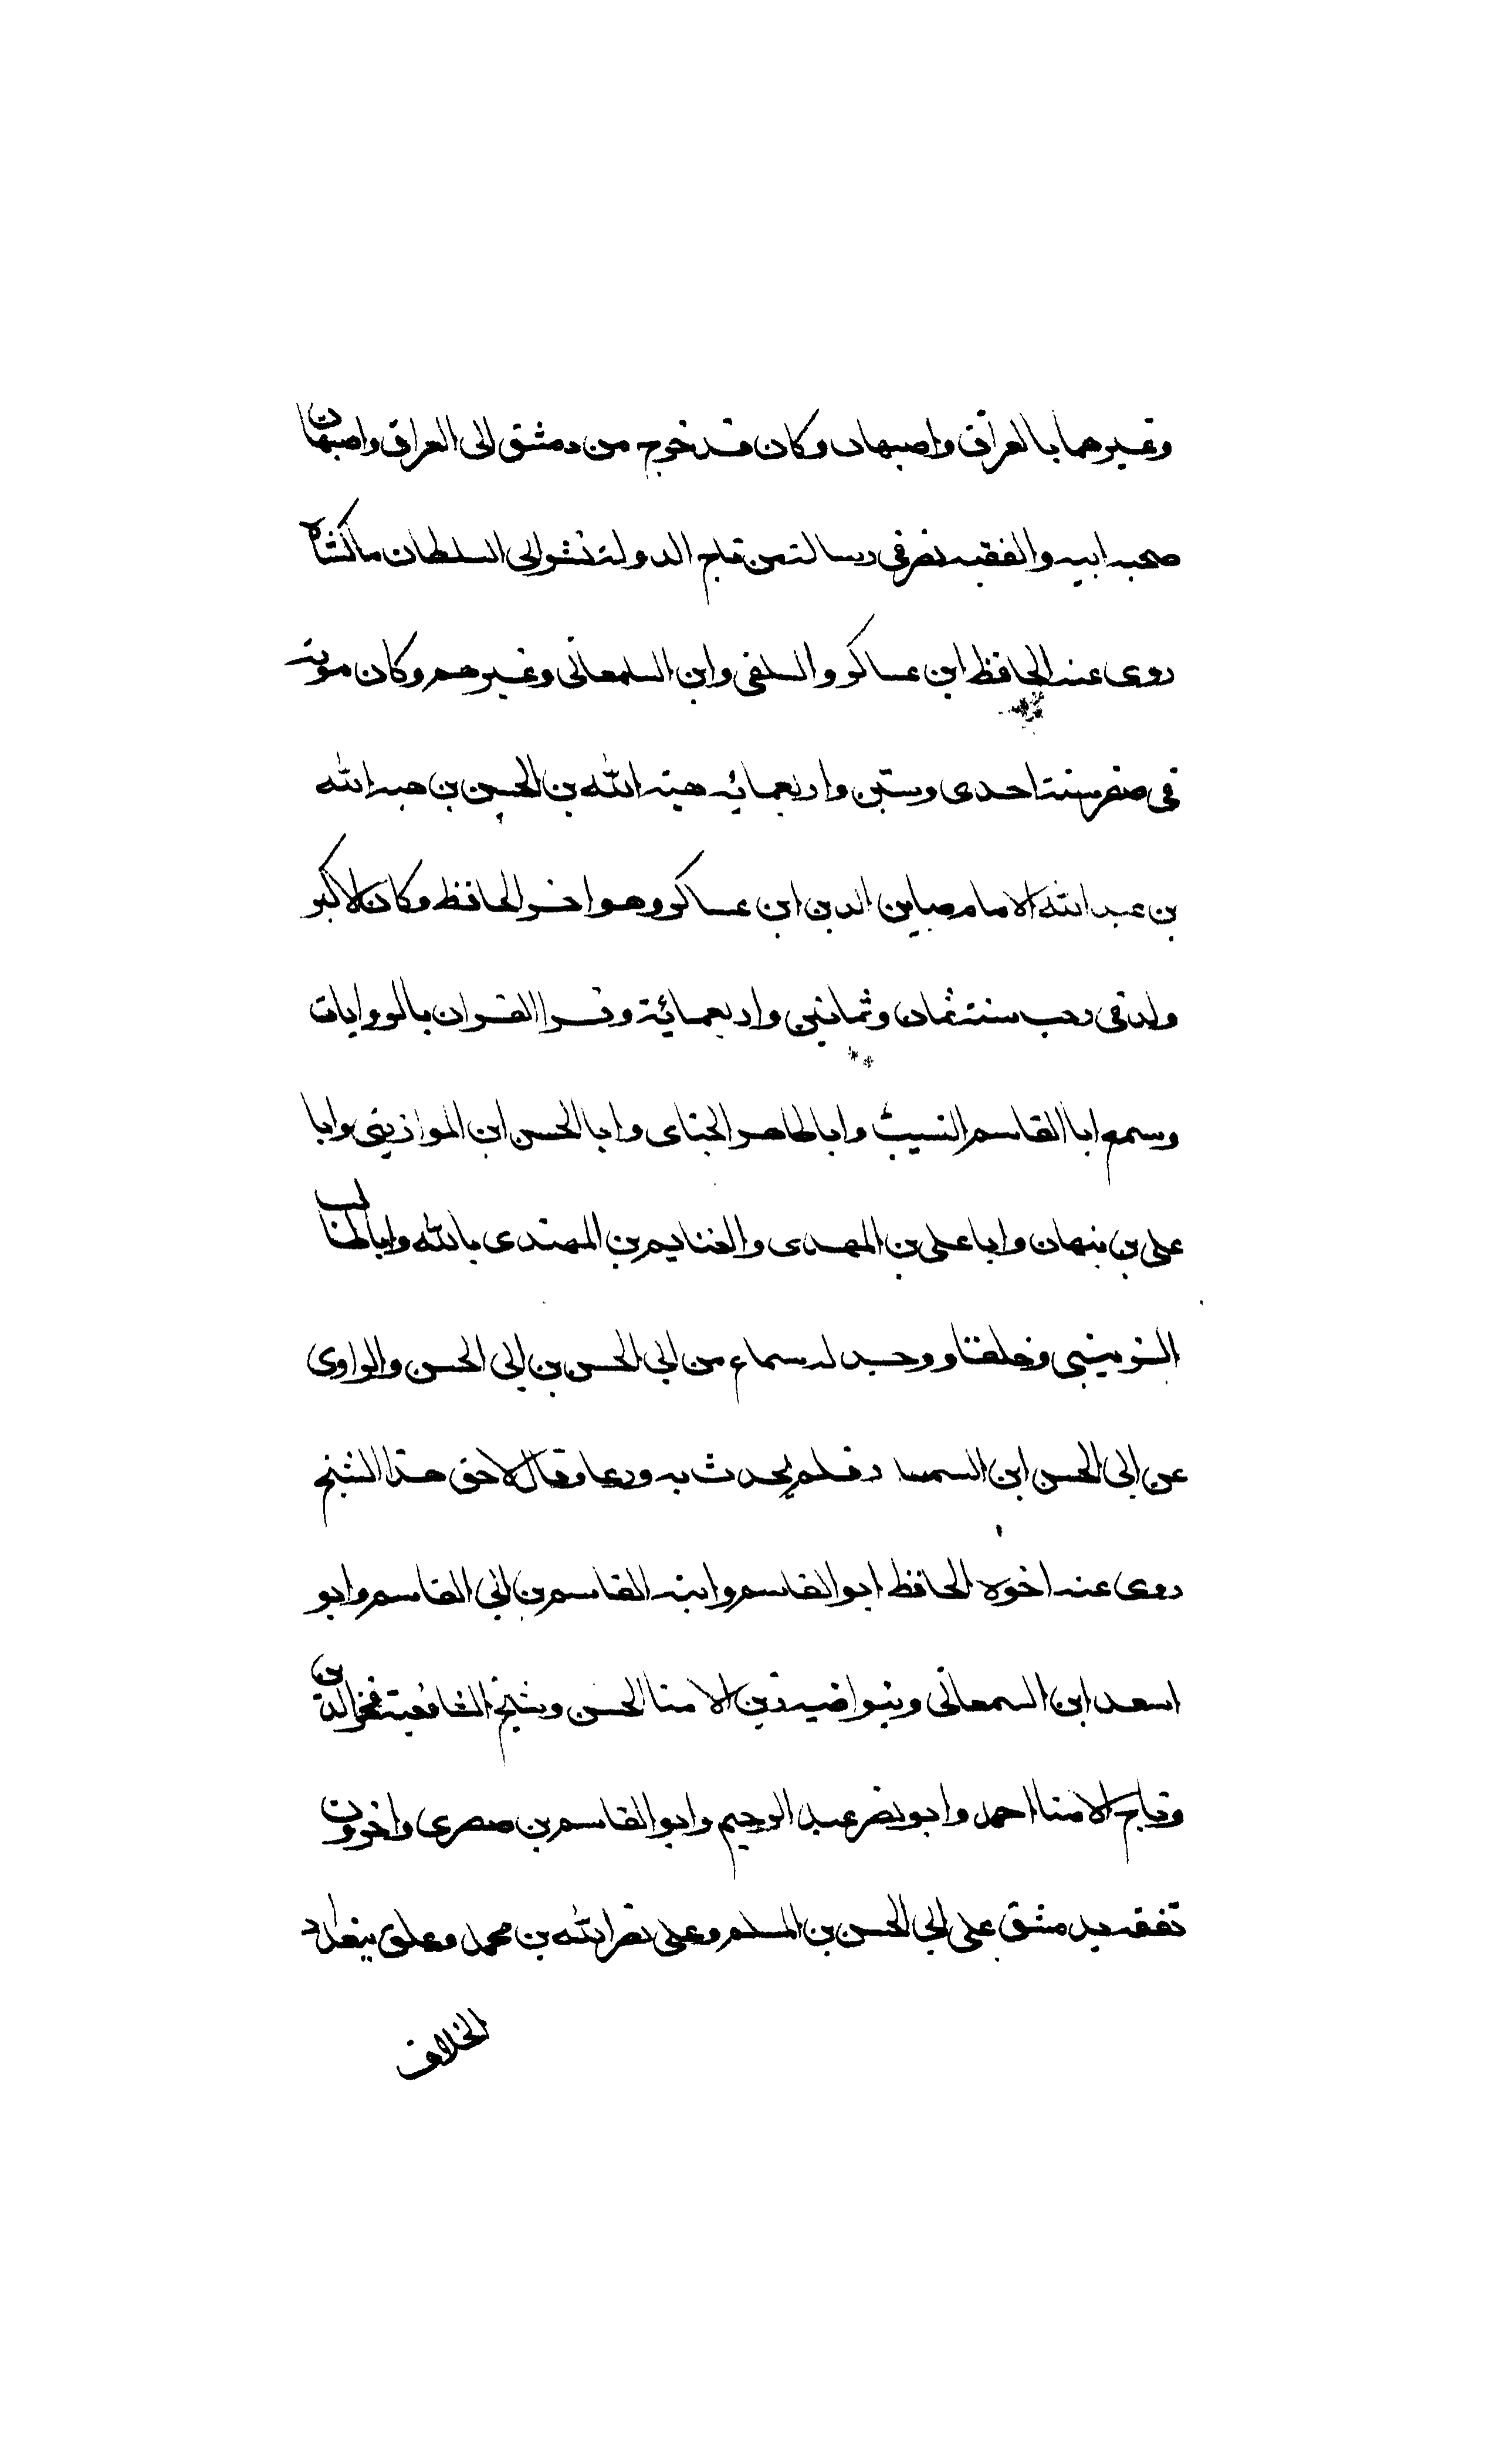 وغيرهما بالعراق واصبهان وكان قد خرج من دمشق الى العراق واصبهان
صحبه ابيه والفقيه نصر فى رسالة من تاج الدولة تتش الى السلطان ملكشاه
روى عنه الحافظ ابن عساكر والسلفى وابن السمعانى وغيرهم وكان موته
فى صفر سنة احدى وستين واربعمائه هبة الله بن الحسن بن هبه الله
بن عبد الله الامام صاين الدين ابن عساكر وهو اخو الحافظ وكان الاكبر
ولد فى رجب سنة ثمان وثمانين واربعمائة وقرا القران بالروايات
وسمع ابا القاسم النسيب وابا طاهر الحنائى وابا الحسن ابن الموازينى وابا
على بن نبهان وابا على بن المهدى والغنايم بن المهتدى بالله وابا طالب
الزينبى وخلقا ووجد له سماع من ابى الحسن بن ابى الحسن والراوى
عن ابى الحسن ابن السمسار فلم يحدث به ورعا وقال لاحق هذا الشيخ
روى عنه اخوه الحافظ ابو القاسم وابنه القاسم بن ابى القاسم وابو
اسعد ابن السمعانى وبنو اخيه زين الامنا الحسن وشيخ الشافعية فخر الدين
وتاج الامنا احمد وابو نصر عبد الرحيم وابو القاسم بن صصرى واخرون
تفقه بدمشق على ابى الحسن بن المسلم وعلى نصر الله بن محمد وعلق ببغداد
الخلاف